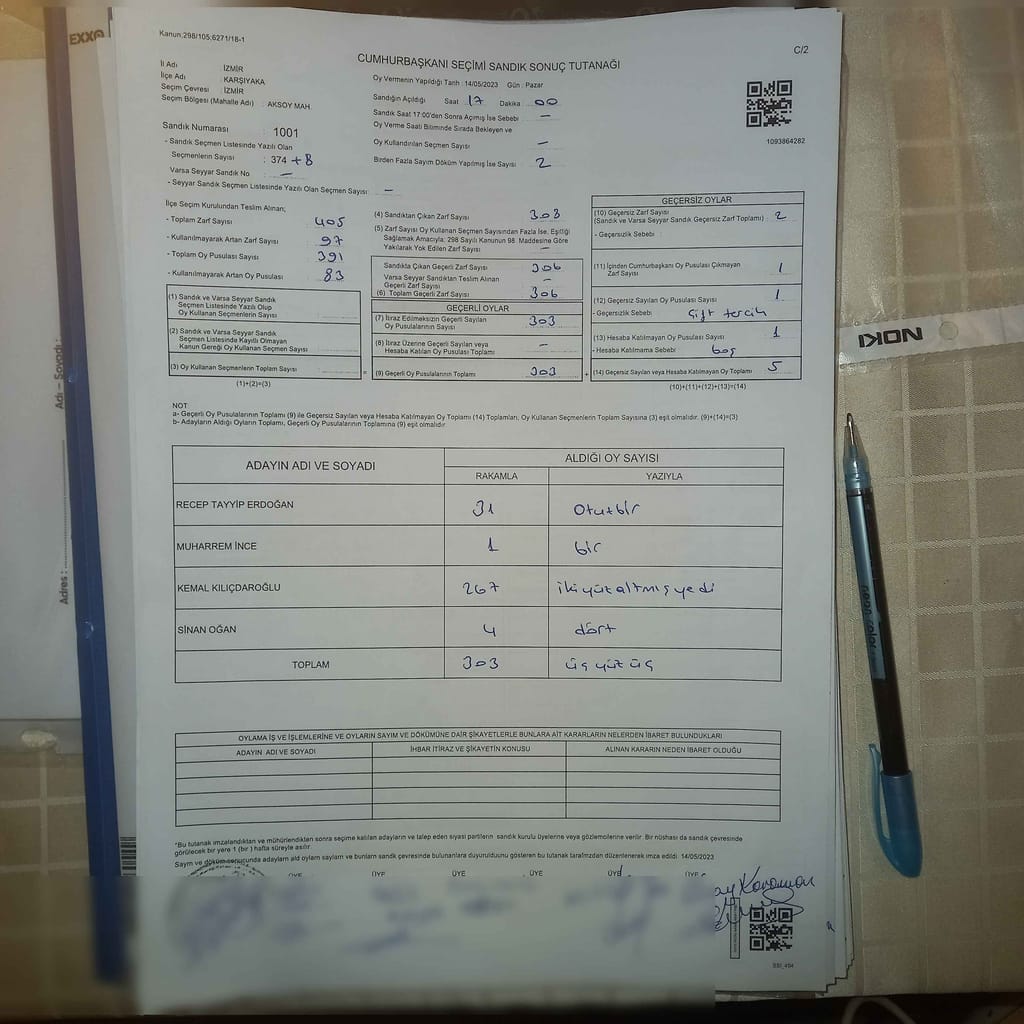 EXXA
Kanun.298/105;6271/18-1
C/2
CUMHURBAŞKANI SEÇİMİ SANDIK SONUÇ TUTANAĞI
İl Adı : İZMİR
İlçe Adı : KARŞIYAKA
Seçim Çevresi : İZMİR
Seçim Bölgesi (Mahalle Adı) : AKSOY MAH.
Sandık Numarası : 1001
- Sandık Seçmen Listesinde Yazılı Olan
Seçmenlerin Sayısı : 374 + 8
Varsa Seyyar Sandık No –
- Seyyar Sandık Seçmen Listesinde Yazılı Olan Seçmen Sayısı : –
Oy Vermenin Yapıldığı Tarih : 14/05/2023 Gün : Pazar
Sandığın Açıldığı Saat 17 Dakika 00
Sandık Saat 17:00'den Sonra Açımış İse Sebebi –
Oy Verme Saati Bitiminde Sırada Bekleyen ve
Oy Kullandırılan Seçmen Sayısı –
Birden Fazla Sayım Döküm Yapılmış İse Sayısı 2
1093864282
İlçe Seçim Kurulundan Teslim Alınan;
- Toplam Zarf Sayısı 405
- Kullanılmayarak Artan Zarf Sayısı 97
- Toplam Oy Pusulası Sayısı 391
- Kullanılmayarak Artan Oy Pusulası 83
(1) Sandık ve Varsa Seyyar Sandık
Seçmen Listesinde Yazılı Olup
Oy Kullanan Seçmenlerin Sayısı
(2) Sandık ve Varsa Seyyar Sandık
Seçmen Listesinde Kayıtlı Olmayan
Kanun Gereği Oy Kullanan Seçmen Sayısı
(3) Oy Kullanan Seçmenlerin Toplam Sayısı
(1)+(2)=(3)
=
(4) Sandıktan Çıkan Zarf Sayısı 308
(5) Zarf Sayısı Oy Kullanan Seçmen Sayısından Fazla İse, Eşitliği
Sağlamak Amacıyla; 298 Sayılı Kanunun 98. Maddesine Göre
Yakılarak Yok Edilen Zarf Sayısı –
Sandıkta Çıkan Geçerli Zarf Sayısı 306
Varsa Seyyar Sandıktan Teslim Alınan
Geçerli Zarf Sayısı –
(6) Toplam Geçerli Zarf Sayısı 306
GEÇERLİ OYLAR
(7) İtiraz Edilmeksizin Geçerli Sayılan
Oy Pusulalarının Sayısı 303
(8) İtiraz Üzerine Geçerli Sayılan veya
Hesaba Katılan Oy Pusulası Toplamı –
(9) Geçerli Oy Pusulalarının Toplamı 303
+
GEÇERSİZ OYLAR
(10) Geçersiz Zarf Sayısı
(Sandık ve Varsa Seyyar Sandık Geçersiz Zarf Toplamı) : 2
- Geçersizlik Sebebi :
(11) İçinden Cumhurbaşkanı Oy Pusulası Çıkmayan
Zarf Sayısı 1
(12) Geçersiz Sayılan Oy Pusulası Sayısı 1
- Geçersizlik Sebebi : Çift tercih
(13) Hesaba Katılmayan Oy Pusulası Sayısı : 1
- Hesaba Katılmama Sebebi boş
(14) Geçersiz Sayılan veya Hesaba Katılmayan Oy Toplamı 5
(10)+(11)+(12)+(13)=(14)
NOT:
a- Geçerli Oy Pusulalarının Toplamı (9) ile Geçersiz Sayılan veya Hesaba Katılmayan Oy Toplamı (14) Toplamları, Oy Kullanan Seçmenlerin Toplam Sayısına (3) eşit olmalıdır. (9)+(14)=(3)
b- Adayların Aldığı Oyların Toplamı, Geçerli Oy Pusulalarının Toplamına (9) eşit olmalıdır.
ADAYIN ADI VE SOYADI ALDIĞI OY SAYISI
RAKAMLA YAZIYLA
RECEP TAYYİP ERDOĞAN 31 Otutbir
MUHARREM İNCE 1 bir
KEMAL KILIÇDAROĞLU 267 ikiyüzaltmışyedi
SİNAN OĞAN 4 dört
TOPLAM 303 üçyüzüç
OYLAMA İŞ VE İŞLEMLERİNE VE OYLARIN SAYIM VE DÖKÜMÜNE DAİR ŞİKAYETLERLE BUNLARA AİT KARARLARIN NELERDEN İBARET BULUNDUKLARI
ADAYIN ADI VE SOYADI İHBAR İTİRAZ VE ŞİKAYETİN KONUSU ALINAN KARARIN NEDEN İBARET OLDUĞU
"Bu tutanak imzalandıktan ve mühürlendikten sonra seçime katılan adayların ve talep eden siyasi partilerin sandık kurulu üyelerine veya gözlemcilerine verilir. Bir nüshası da sandık çevresinde
görülecek bir yere 1 (bir ) hafta süreyle asılır.
Sayım ve döküm sonucunda adayların aldı oyların sayların ve bunların sandık çevresinde bulunanlara duyurulduunu gösteren bu tutanak tarafmzdan düzenlenerek imza edildi. 14/05/2023
ÜYE ÜYE ÜYE ÜYE ÜYE ÜYE
Karaman
Adı – Soyadı :
Adres :
NOKI